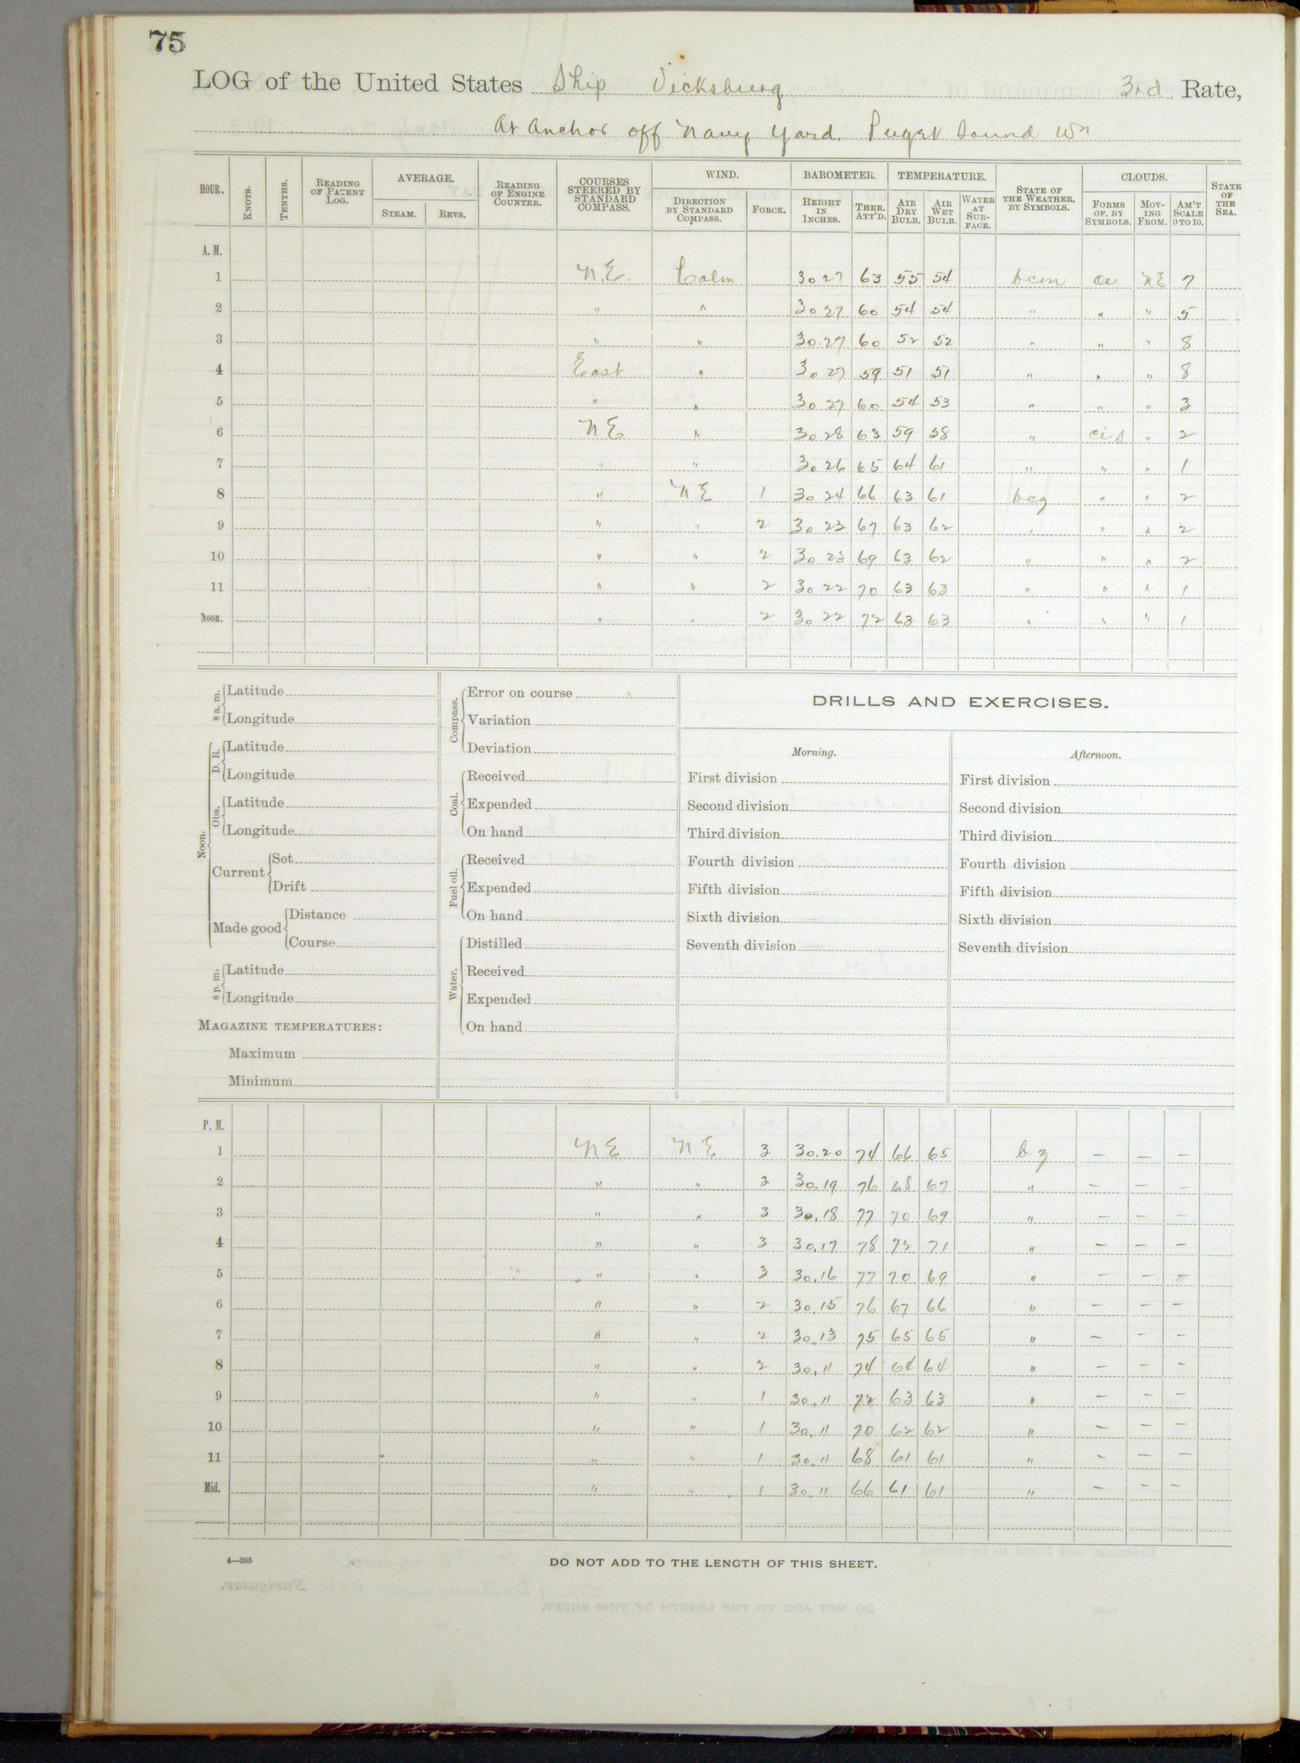 75
LOG of the United States Ship Vicksburg 3rd Rate,
At Anchor off Navy Yard. Puget Sound Wn
HOUR. KNOTS. TENTHS. READING OF PATENT LOG. AVERAGE. STEAM. REVS. READING OF ENGINE COUNTER. COURSES STEERED BY STANDARD COMPASS. WIND. DIRECTION BY STANDARD COMPASS. FORCE. BAROMETER. HEIGHT IN INCHES. THER. ATT'D. TEMPERATURE. AIR DRY BULB. AIR WET BULB. WATER AT SURFACE. STATE OF THE WEATHER, BY SYMBOLS. CLOUDS. FORMS OF, BY SYMBOLS. MOVING FROM. AM'T SCALE 0 TO 10. STATE OF THE SEA.
A. M.
1 N.E. Calm 30 27 63 55 54 bcm NE 7
2 " " 30 27 60 54 54 " " " 5
3 " " 30.27 60 52 52 " " " 8
4 East " 30 27 59 51 51 " " " 8
5 " " 30 27 60 54 53 " " " 3
6 NE " 30 28 63 59 58 " " 2
7 " " 30 26 65 64 61 " " " 1
8 " NE 1 30 24 66 63 61 bcz " " 2
9 " " 2 30 23 67 63 62 " " " 2
10 " " 2 30 23 69 63 62 " " " 2
11 " " 2 30 22 70 63 63 " " " 1
Noon. " " 2 30 22 72 63 63 " " " 1
8 a. m. Latitude
Longitude
Noon. D. R. Latitude
Longitude
Obs. Latitude
Longitude
Current Set
Drift
Made good Distance
Course
8 p. m. Latitude
Longitude
MAGAZINE TEMPERATURES:
Maximum
Minimum
Compass. Error on course
Variation
Deviation
Coal. Received
Expended
On hand
Fuel oil. Received
Expended
On hand
Water. Distilled
Received
Expended
On hand
DRILLS AND EXERCISES.
Morning.
First division
Second division
Third division
Fourth division
Fifth division
Sixth division
Seventh division
Afternoon.
First division
Second division
Third division
Fourth division
Fifth division
Sixth division
Seventh division
P. M.
1 NE NE 3 30.20 74 66 65 bz — — —
2 " " 3 30.19 76 68 67 " — — —
3 " " 3 30.18 77 70 69 " — — —
4 " " 3 30.17 78 72 71 " — — —
5 " " 3 30.16 77 70 69 " — — —
6 " " 2 30.15 76 67 66 " — — —
7 " " 2 30.13 75 65 65 " — — —
8 " " 2 30.11 74 64 64 " — — —
9 " " 1 30.11 72 63 63 " — — —
10 " " 1 30.11 70 62 62 " — — —
11 " " 1 30.11 68 61 61 " — — —
Mid. " " 1 30.11 66 61 61 " — — —
4—265
DO NOT ADD TO THE LENGTH OF THIS SHEET.